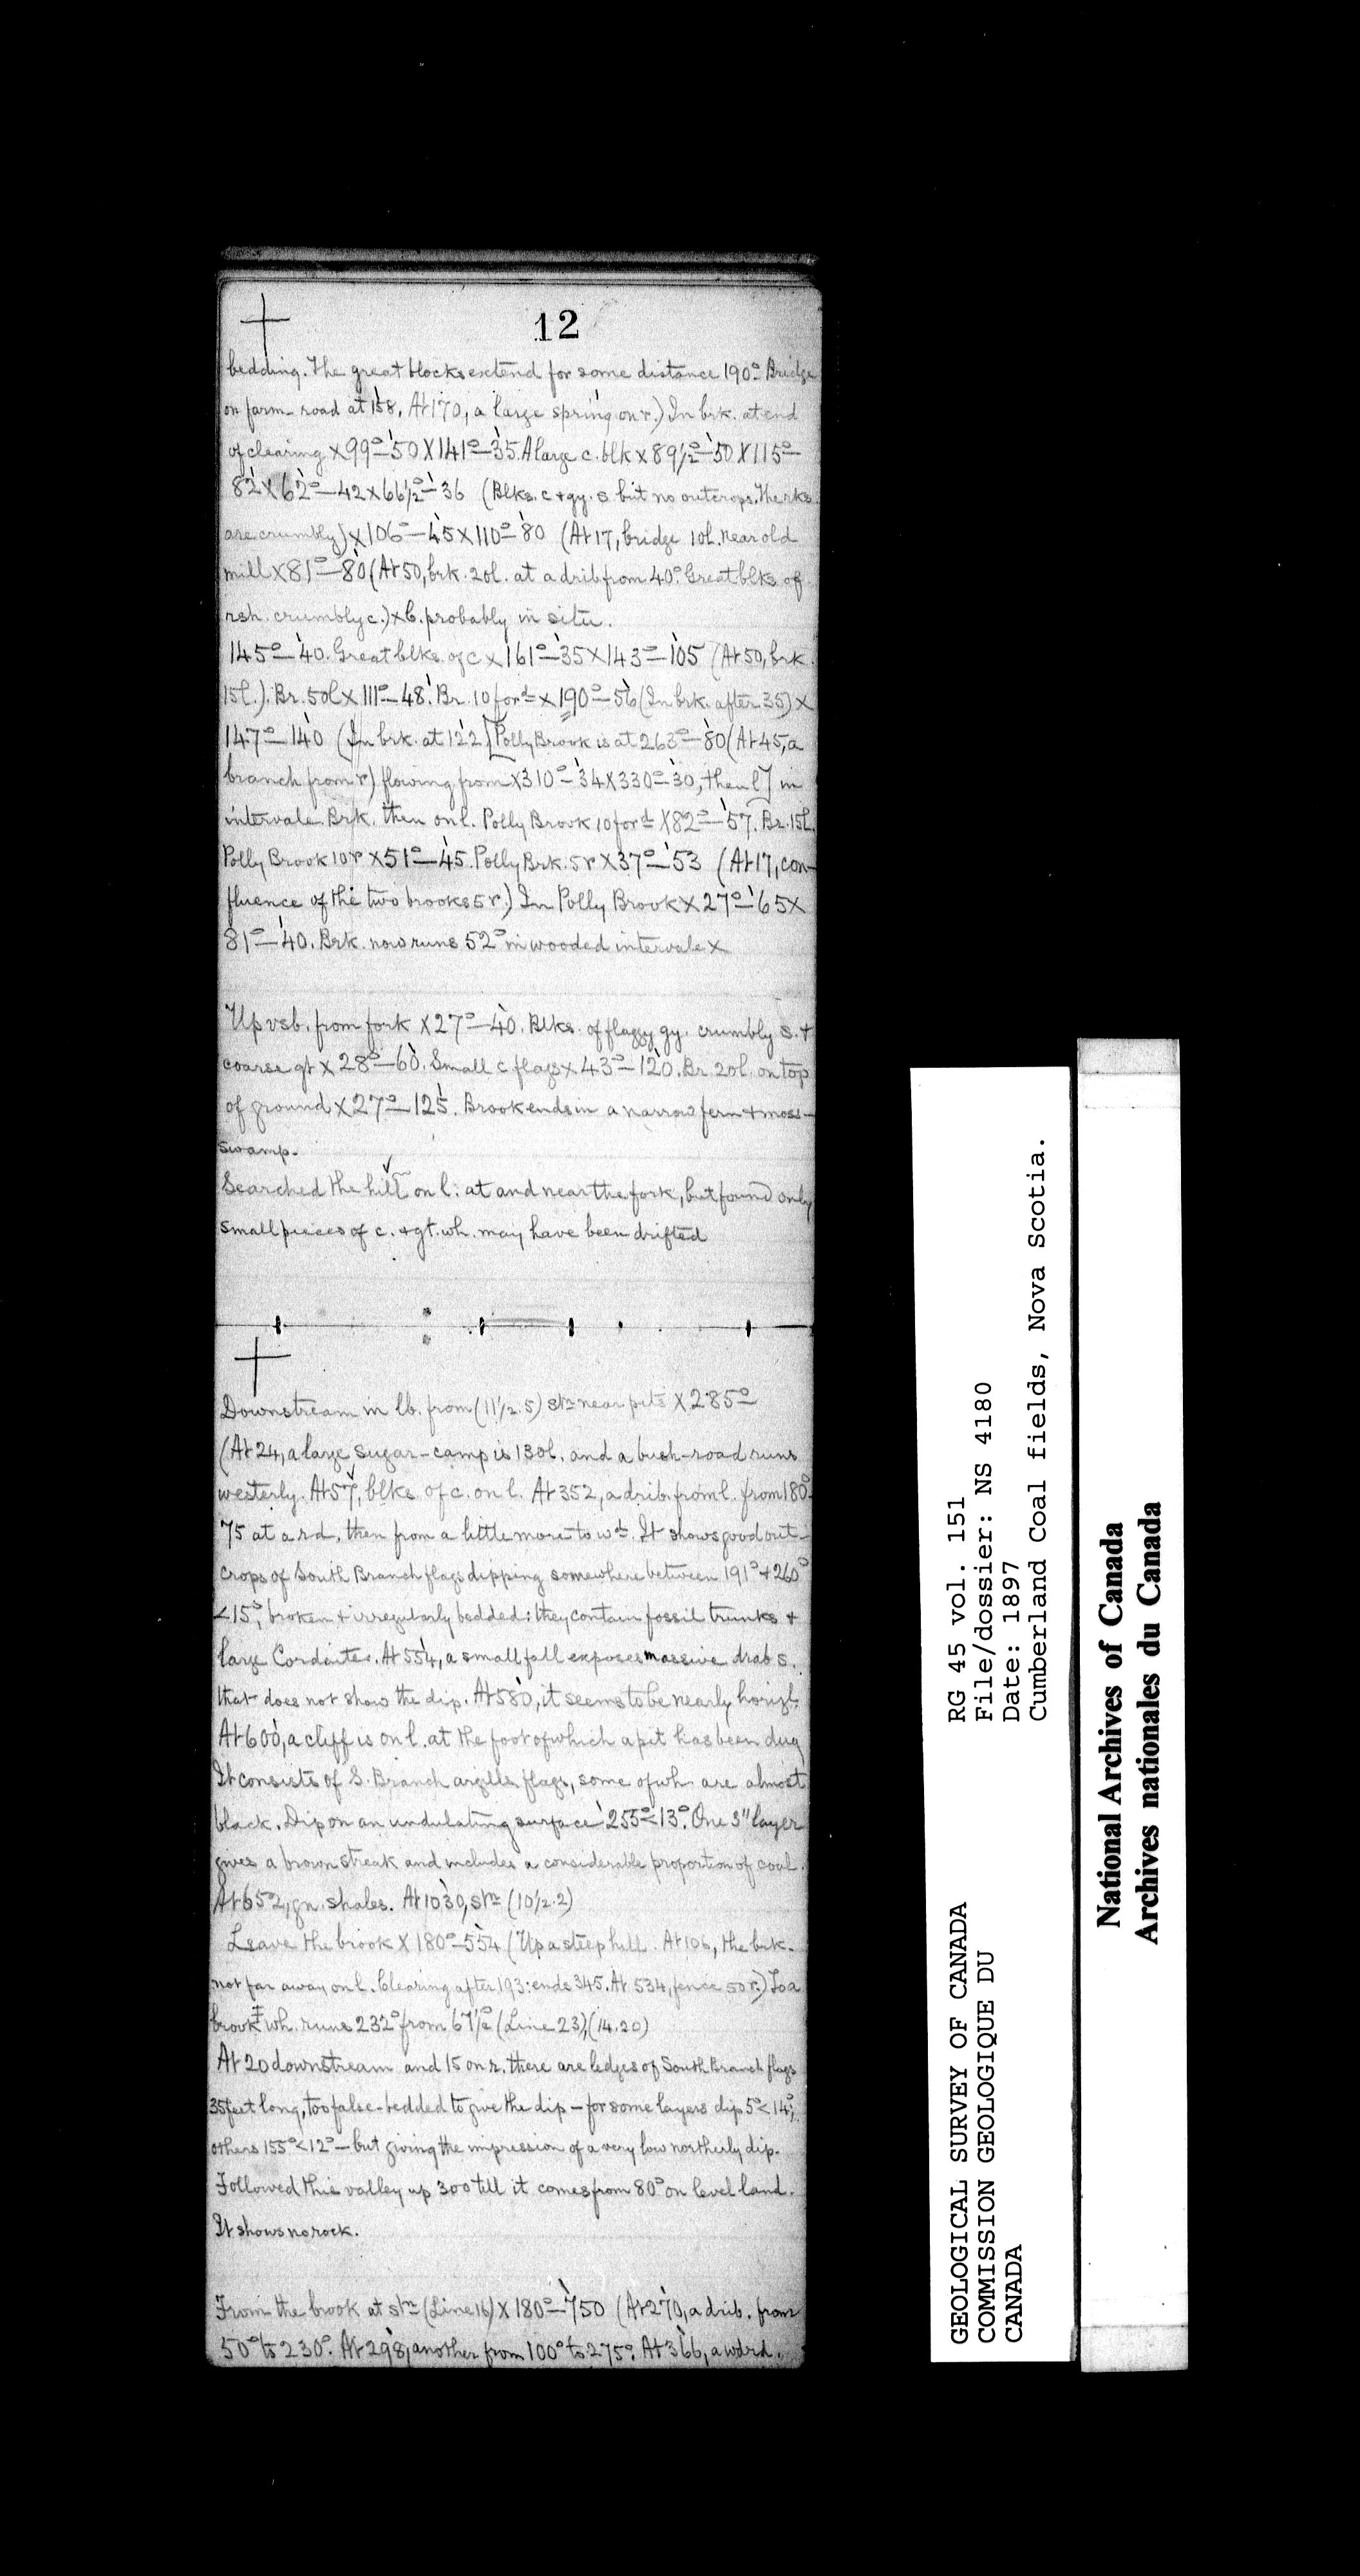 12
bedding. The great blocks extend for some distance 190° Bridge
on farm-road at 158. At 170, a large spring on r.) In brk. at end
of clearing x 99°—50 x 141°—35. A large c. blk x 89½°—50 x 115°—
82 x 62°—42 x 66½°—36 (Blks. c + gy. s but no outcrops. The rks.
are crumbly) x 106°—45 x 110°—80 (At 17, bridge 10l. near old
mill x 81°—80 (At 50, brk. 20l. at a drib from 40°. Great blks of
rsh. crumbly c.) x C. probably in situ.
145°—40. Great blks. of c x 161°—35 x 143°—105 (At 50, brk.
15l.). Br. 50l x 111°—48. Br. 10 ford x 190°—56 (In brk. after 35) x
147°—140 (In brk. at 122) [Polly Brook is at 263°—80 (At 45, a
branch from r) flowing from x 310°—34 x 330°—30, then l] in
intervale. Brk. then on l. Polly Brook 10 ford x 82°—57. Br. 15l.
Polly Brook 10r x 51°—45. Polly Brk. 5r x 37°—53 (At 17, con-
fluence of the two brooks 5r.) In Polly Brook x 27°—65 x
81°—40. Brk. now runs 52° in wooded intervale x
Up vsb. from fork x 27°—40. Blks. of flaggy gy. crumbly s. +
coarse gt x 28°—60. Small c flags x 43°—120. Br. 20l. on top
of ground x 27°—125. Brook ends in a narrow fern + moss-
swamp.
Searched the hill on l. at and near the fork, but found only
small pieces of c. + gt. wh. may have been drifted
Downstream in lb. from (11½.5) stn near pits x 285°—
(At 24, a large sugar-camp is 130l. and a bush-road runs
westerly. At 57, blks. of c. on l. At 352, a drib. from l. from 180°
75 at a rd, then from a little more to wd. It shows good out-
crops of South Branch flags dipping somewhere between 191° + 260°
<15°, broken + irregularly bedded: they contain fossil trunks +
large Cordaites. At 554, a small fall exposes massive drab s.
that does not show the dip. At 580, it seems to be nearly horizl.
At 600, a cliff is on l. at the foot of which a pit has been dug
It consists of S. Branch argills flags, some of wh. are almost
black. Dip on an undulating surface 255°<13°. One 3" layer
gives a brown streak and includes a considerable proportion of coal.
At 652, gn. shales. At 1030, stn (10½.2)
Leave the brook x 180°—554 (Up a steep hill. At 106, the brk.
not far away on l. Clearing after 193: ends 345. At 534, fence 50r.) To a
brook wh. runs 232° from 67½° (Line 23), (14.20)
At 20 downstream and 15 on r. there are ledges of South Branch flags
35 feet long, too false-bedded to give the dip—for some layers dip 5°<14°;
others 155°<12°—but giving the impression of a very low northerly dip.
Followed this valley up 300 till it comes from 80° on level land.
It shows no rock.
From the brook at stn (Line 16) x 180°—750 (At 270, a drib. from
50° to 230°. At 298, another from 100° to 275°. At 366, a wdrd.
RG 45 vol. 151
File/dossier: NS 4180
Date: 1897
Cumberland Coal fields, Nova Scotia.
GEOLOGICAL SURVEY OF CANADA
COMMISSION GEOLOGIQUE DU
CANADA
National Archives of Canada
Archives nationales du Canada